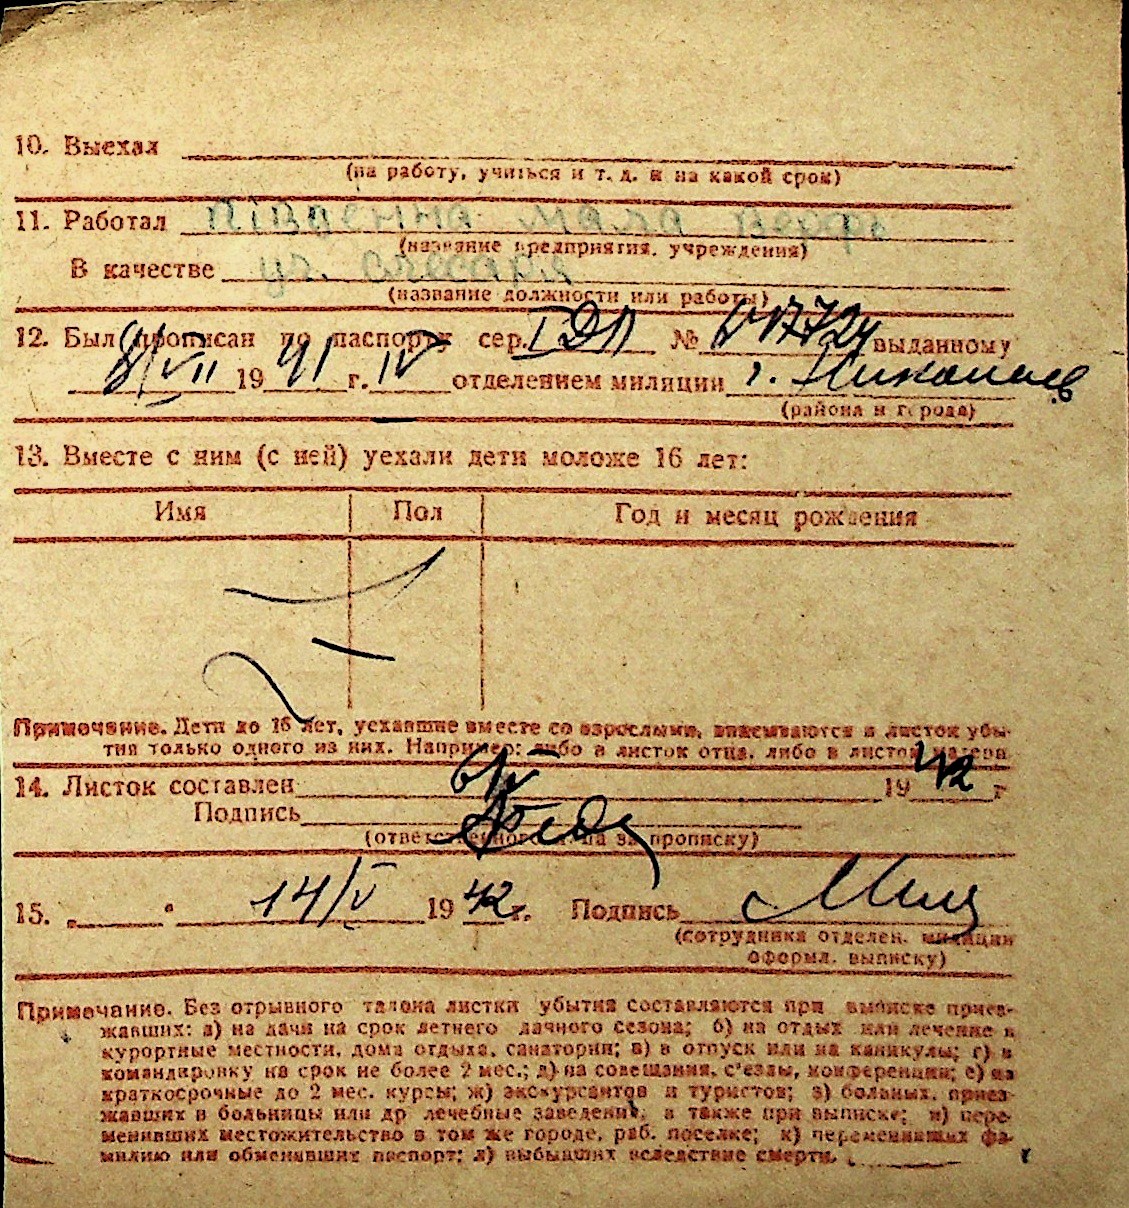 10. Выехал
(на работу, учиться и т. д. и на какой срок)
11. Работал Південна мала верфь
(название предприятия, учреждения)
В качестве уч. слесаря
(название должности или работы)
12. Был прописан по паспорту сер. I ДЛ № выданному
8/VII 1941 г. IV отделением милиции г. Николаев
(района и города)
13. Вместе с ним (с ней) уехали дети моложе 16 лет:
Имя Пол Год и месяц рождения
Примечание. Дети до 16 лет, уехавшие вместе со взрослыми, вписываются в листок убы-
тия только одного из них. Например: либо в листок отца, либо в листок матери
14. Листок составлен 6/V 1942 г
Подпись
(ответственного лица за прописку)
15. „ “ 14/V 1942 г. Подпись
(сотрудника отделен. милиции
оформл. выписку)
Примечание. Без отрывного талона листки убытия составляются при выписке приез-
жавших: а) на дачи на срок летнего дачного сезона; б) на отдых или лечение в
курортные местности, дома отдыха, санатории; в) в отпуск или на каникулы; г) в
командировку на срок не более 2 мес.; д) на совещания, с'езды, конференции; е) на
краткосрочные до 2 мес. курсы; ж) экскурсантов и туристов; з) больных, приез-
жавших в больницы или др лечебные заведения, а также при выписке; и) пере-
менивших местожительство в том же городе, раб. поселке; к) переменивших фа-
милию или обменявших паспорт; л) выбывших вследствие смерти.